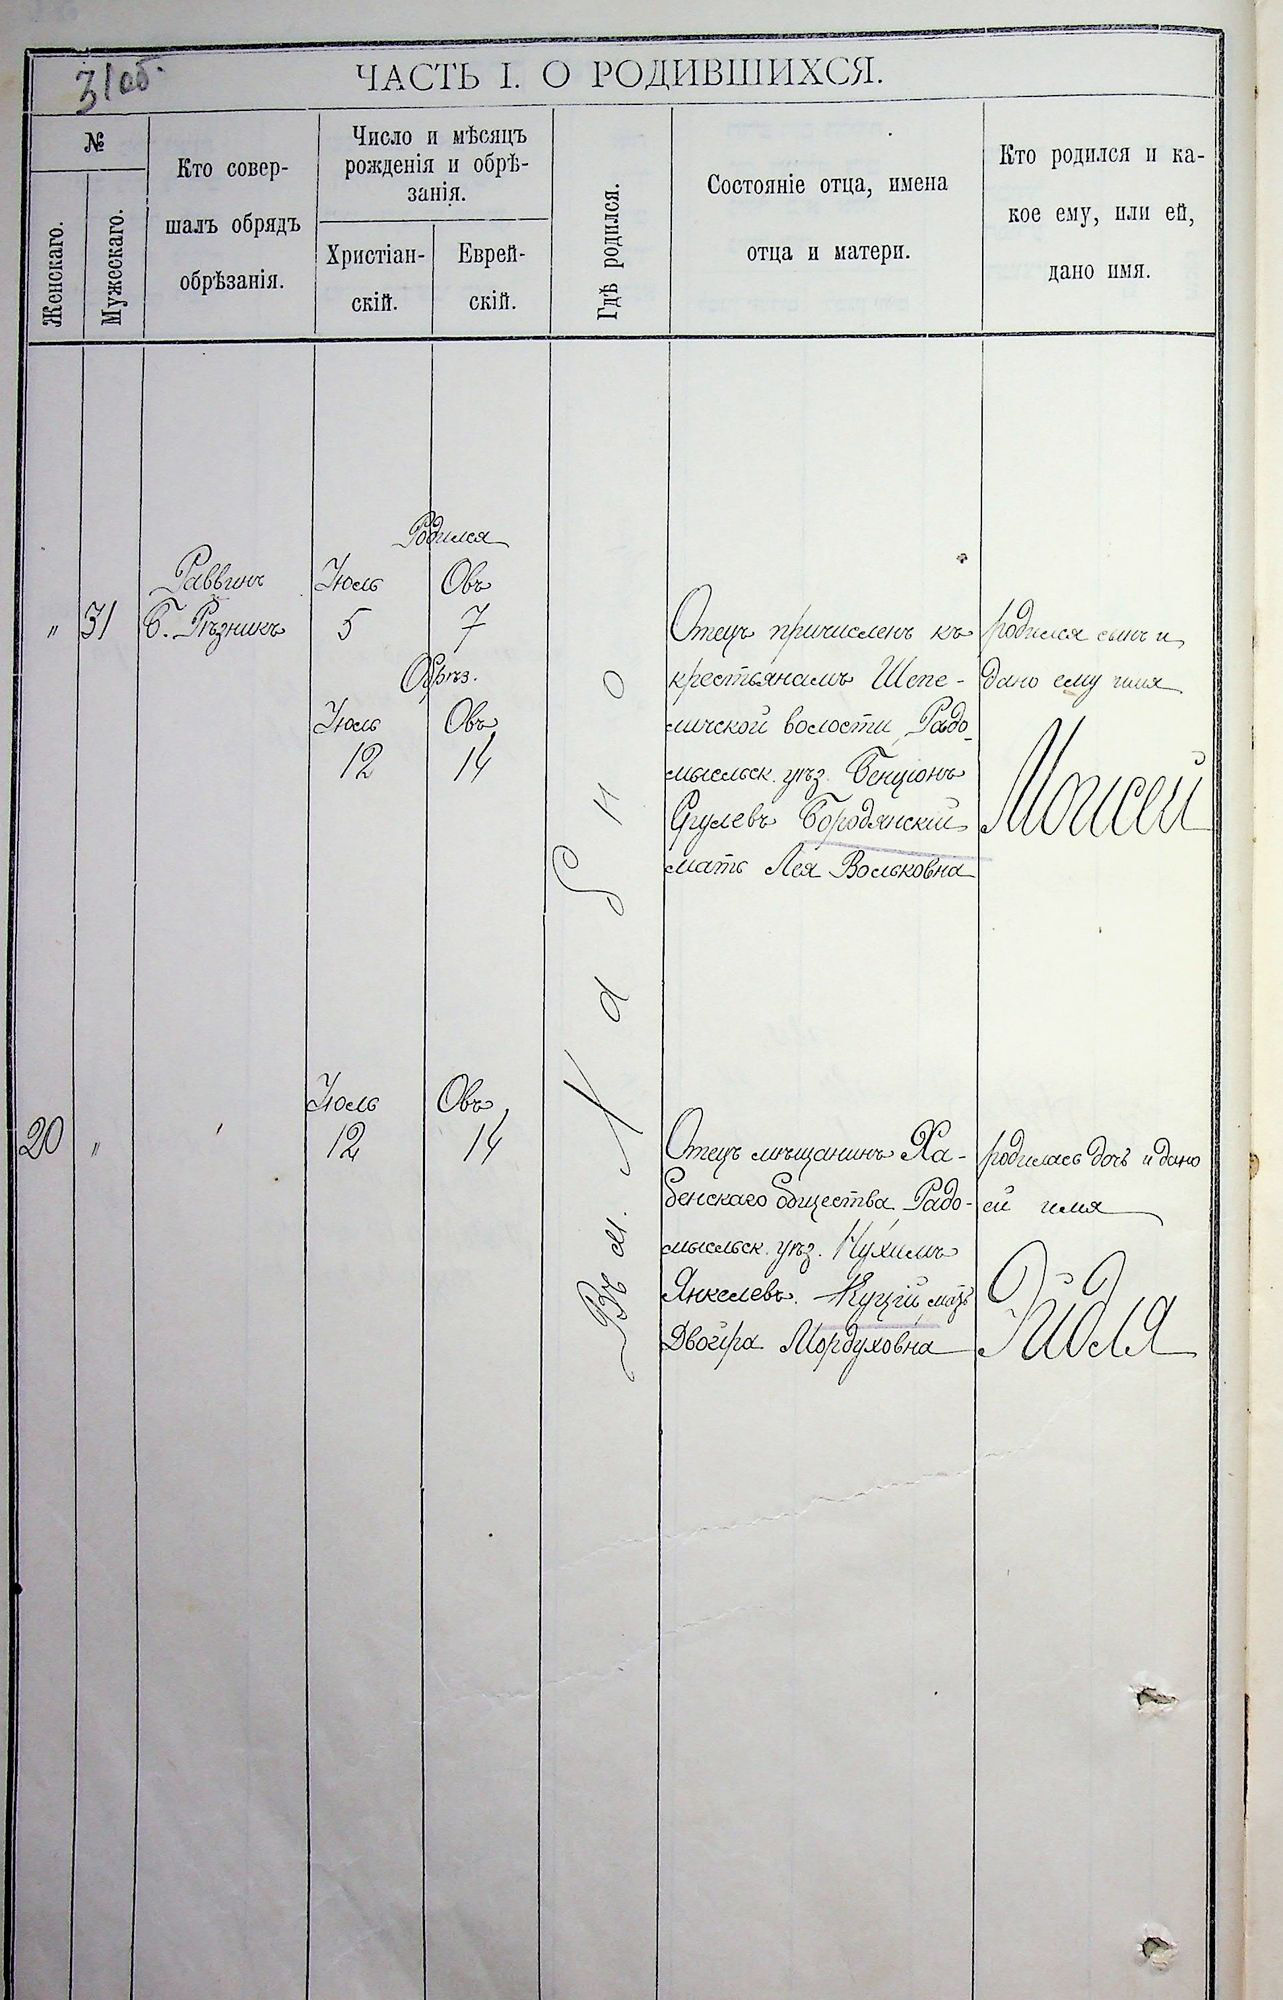 31 об.
ЧАСТЬ I. О РОДИВШИХСЯ.
№
Женскаго.
Мужескаго.
Кто совер-
шалъ обрядъ
обрѣзанія.
Число и мѣсяцъ
рожденія и обрѣ-
занія.
Христіан-
скій.
Еврей-
скій.
Гдѣ родился.
Состояніе отца, имена
отца и матери.
Кто родился и ка-
кое ему, или ей,
дано имя.
Родился
Раввинъ Іюль Овъ
" 31 Б. Рѣзникъ 5 7
Обрѣз.
Іюль Овъ
12 14
Отецъ причисленъ къ
крестьянамъ Шепе-
личской волости Радо-
мысльск. уѣз. Бенціонъ
Срулевъ Бородянскій
мать Лея Вольковна
родился сынъ и
дано ему имя
Моисей
Въ м. Хабно
Іюль Овъ
20 " 12 14
Отецъ мѣщанинъ Ха-
бенскаго общества Радо-
мысльск. уѣз. Нухимъ
Янкелевъ. Куцій, мать
Двойра Мордуховна
родилась дочь и дано
ей имя
Эйдля